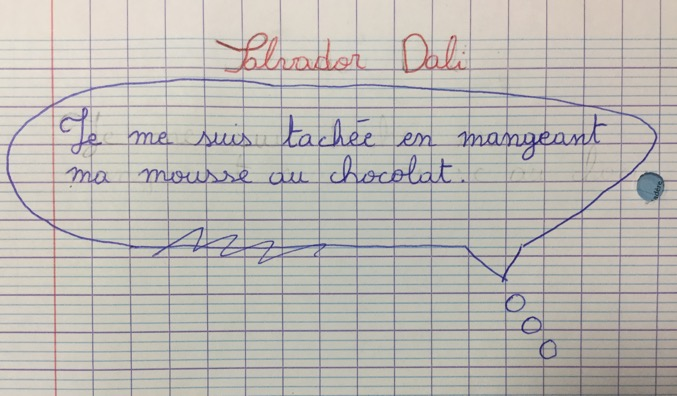 Salvador Dali
Je me suis tachée en mangeant
ma mousse au chocolat.